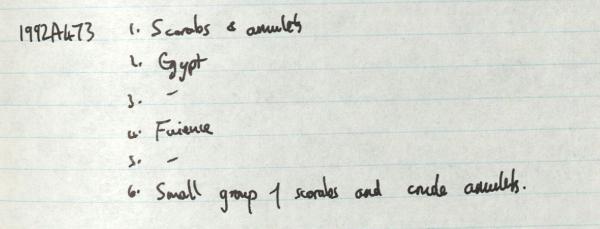 1992A473 1. Scarabs & amulets
2. Egypt
3. -
4. Faience
5. -
6. Small group of scarabs and crude amulets.